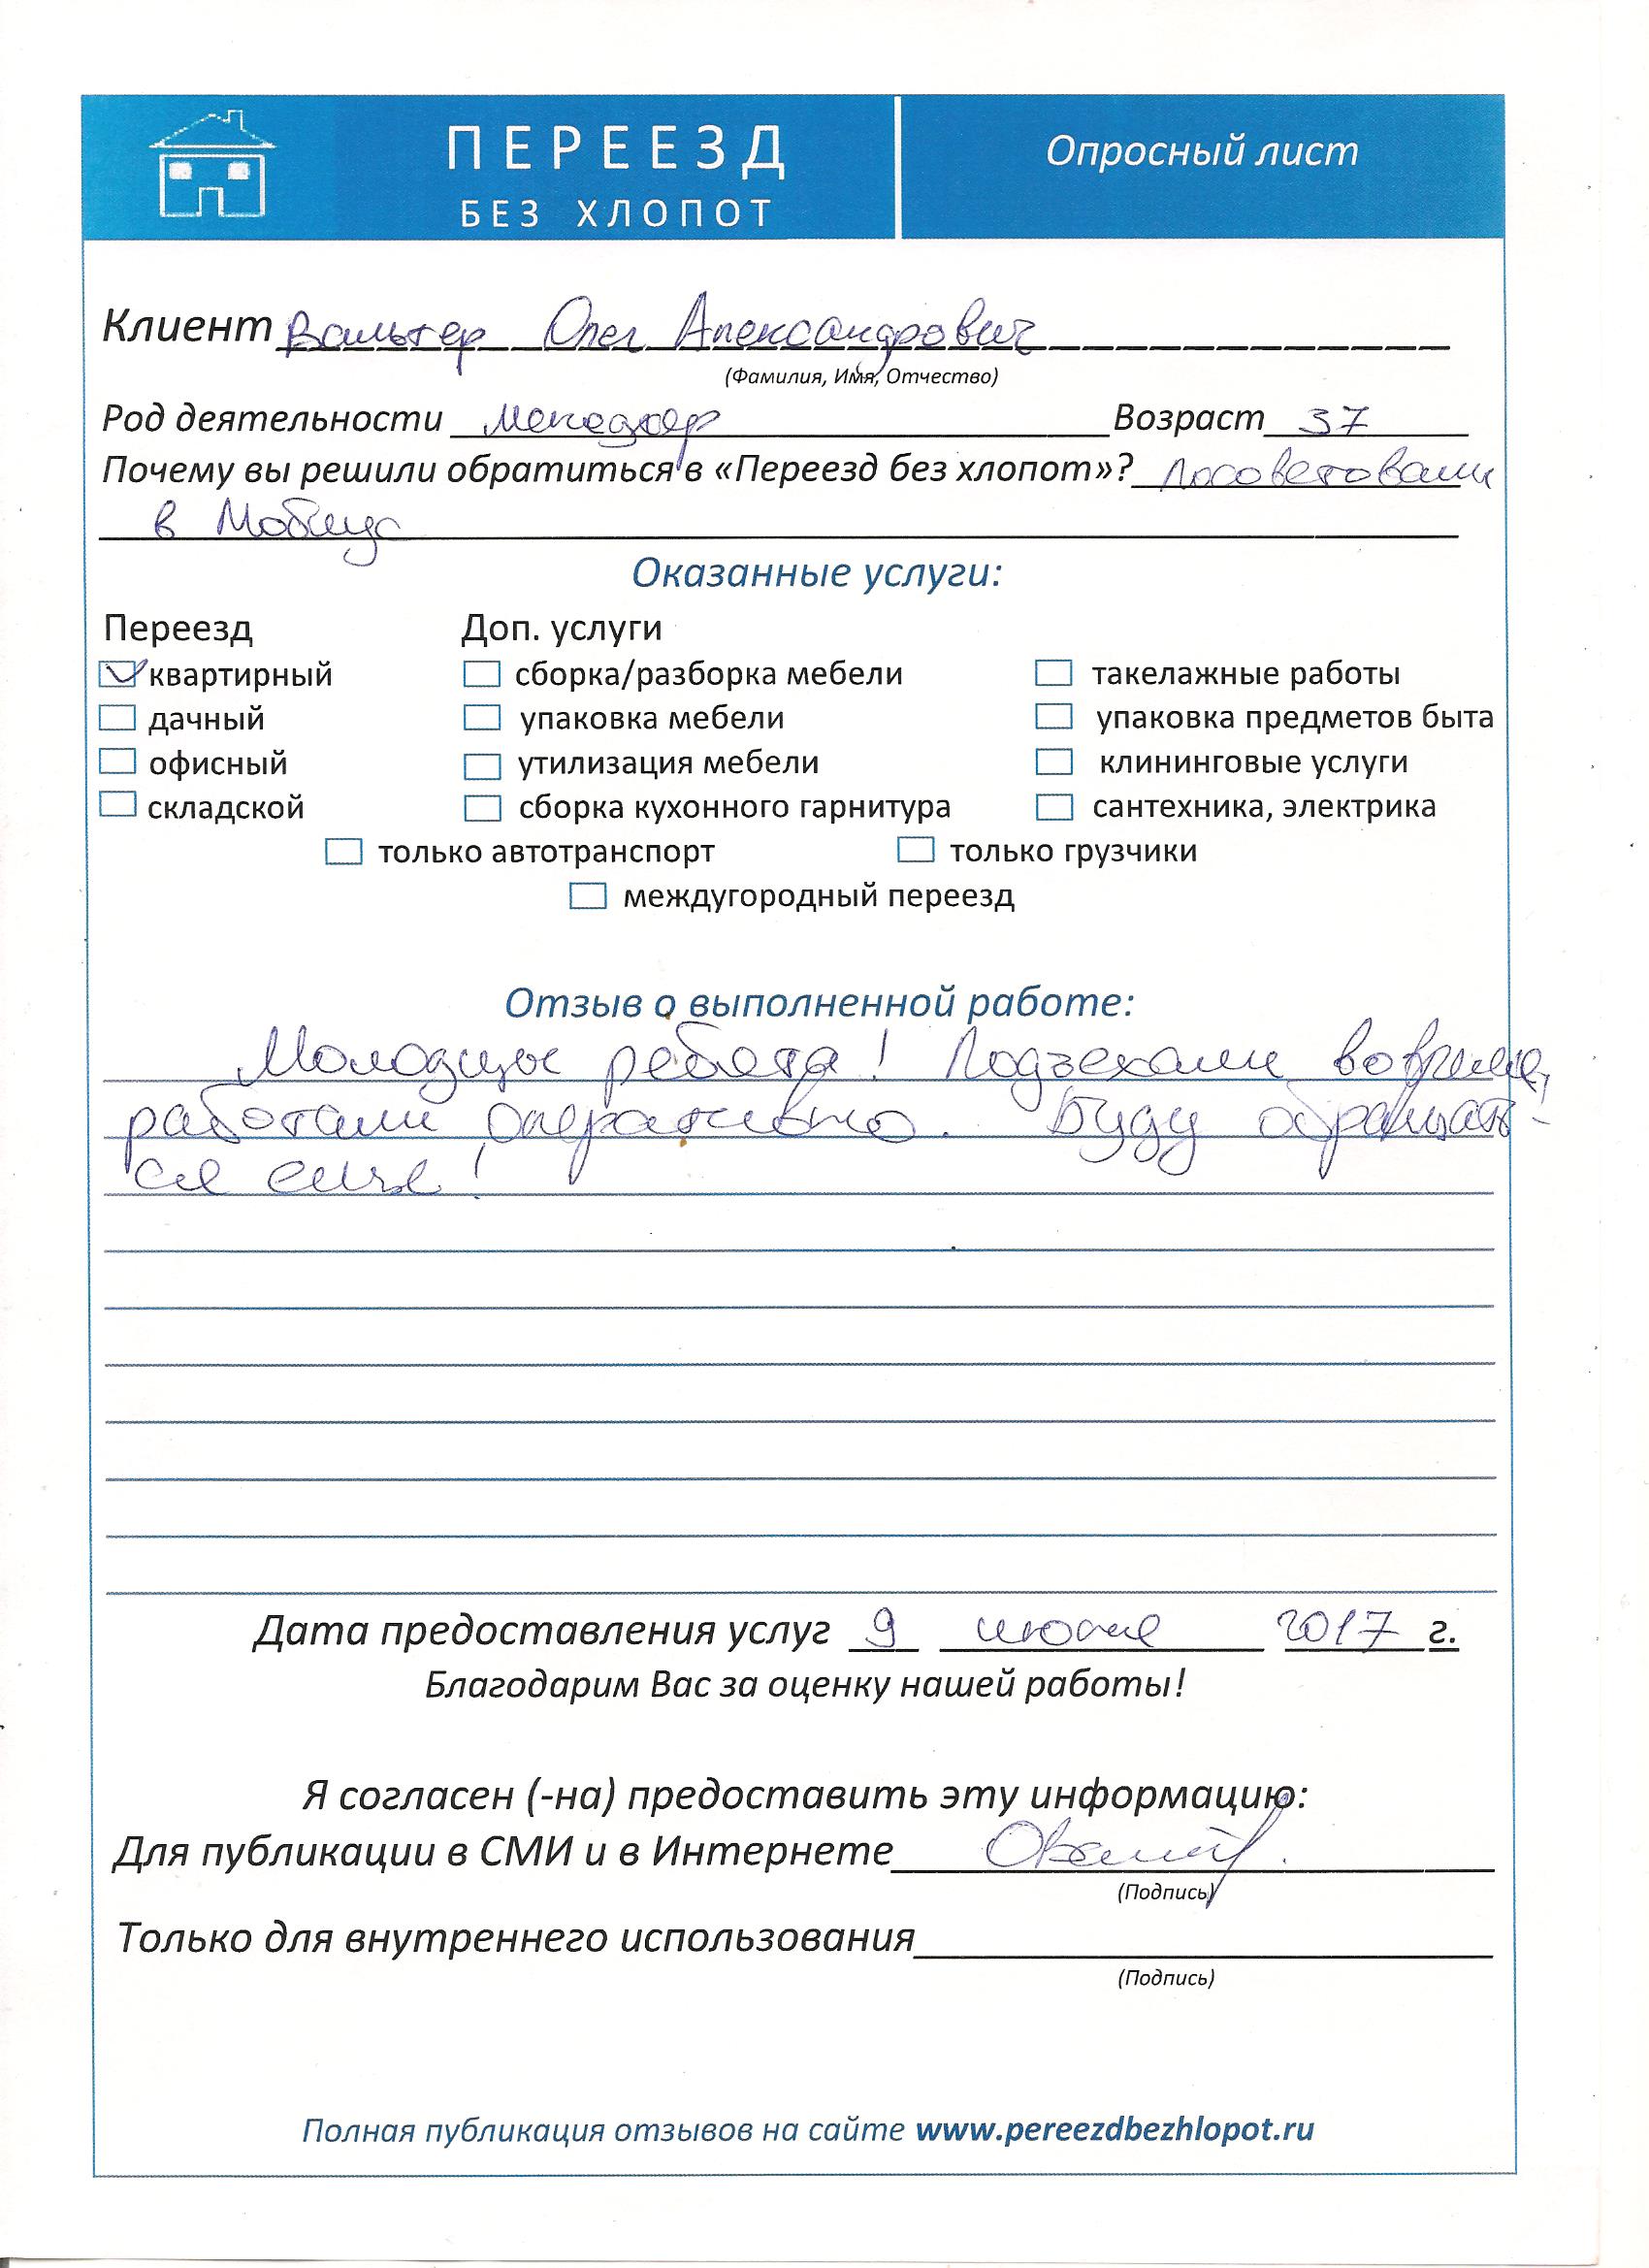 ПЕРЕЕЗД
БЕЗ ХЛОПОТ
Опросный лист
Клиент Вальтер Олег Александрович
(Фамилия, Имя, Отчество)
Род деятельности менеджер Возраст 37
Почему вы решили обратиться в «Переезд без хлопот»? посоветовали
в Мобиус
Оказанные услуги:
Переезд Доп. услуги
квартирный сборка/разборка мебели такелажные работы
дачный упаковка мебели упаковка предметов быта
офисный утилизация мебели клининговые услуги
складской сборка кухонного гарнитура сантехника, электрика
только автотранспорт только грузчики
междугородный переезд
Отзыв о выполненной работе:
Молодцы ребята! Подъехали вовремя,
работали оперативно. Буду обращать-
ся еще!
Дата предоставления услуг 9 июля 2017 г.
Благодарим Вас за оценку нашей работы!
Я согласен (-на) предоставить эту информацию:
Для публикации в СМИ и в Интернете
(Подпись)
Только для внутреннего использования
(Подпись)
Полная публикация отзывов на сайте www.pereezdbezhlopot.ru